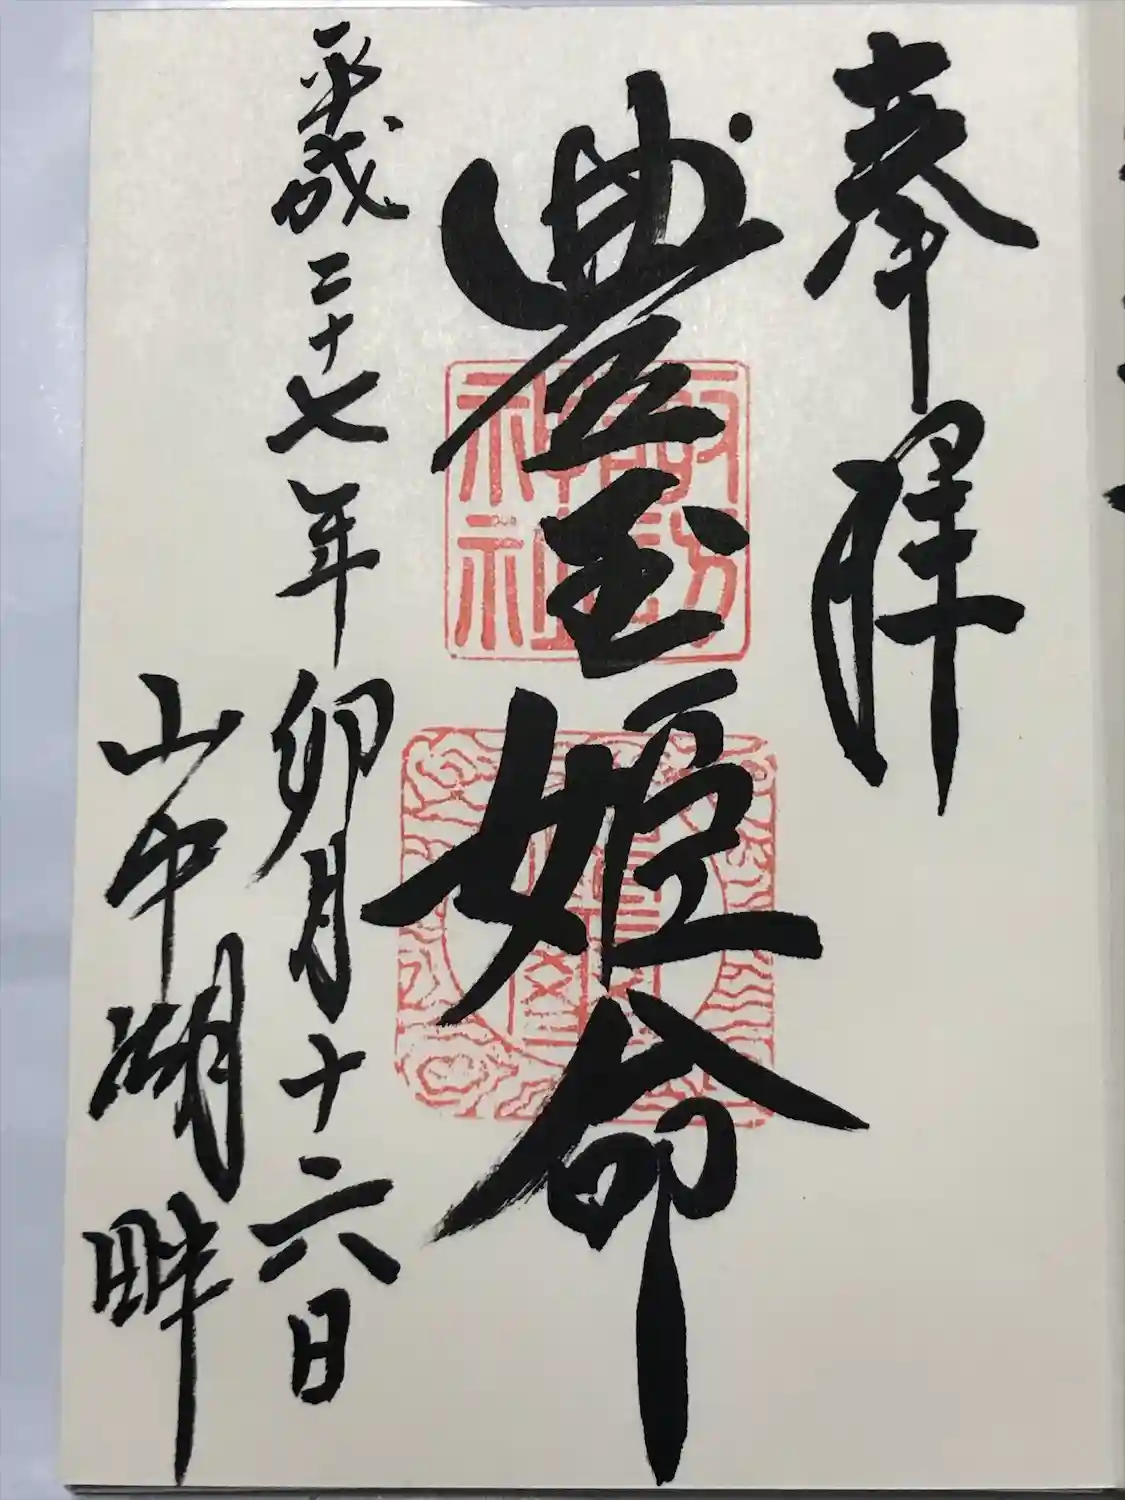 奉拜
豊玉姫命
諏訪神社
平成二十七年卯月十六日
山中湖畔